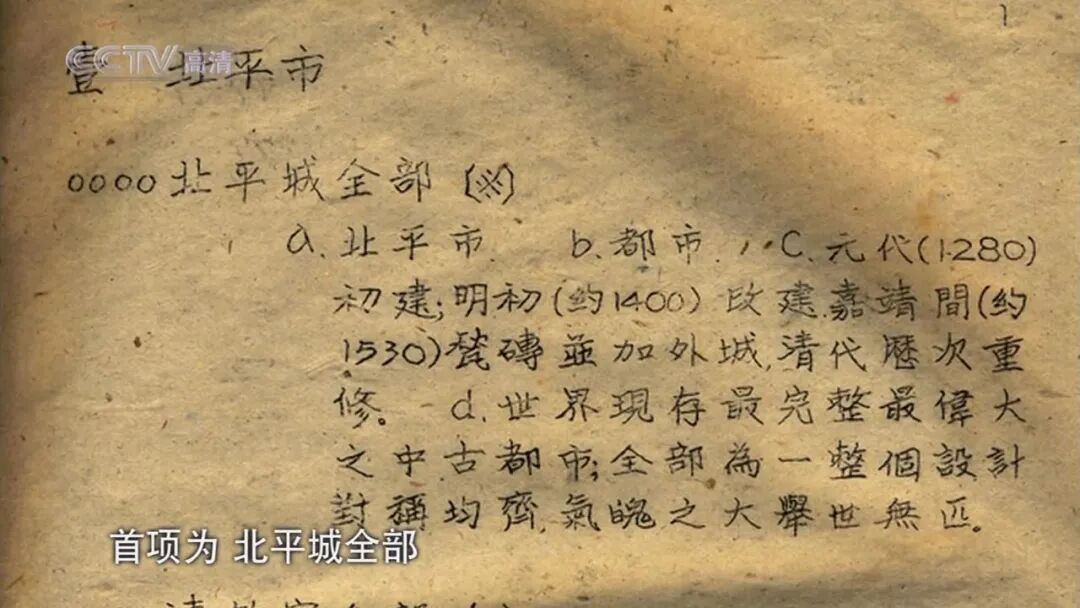 1
CCTV高清
壹 北平市
0000北平城全部(※)
a.北平市. b.都市. C.元代(1280)
初建;明初(约1400)改建.嘉靖間(约
1530)甃磚並加外城,清代歷次重
修。 d.世界現存最完整最偉大
之中古都市;全部為一整個設計
對稱均齊,氣魄之大舉世無匹。
首项为 北平城全部